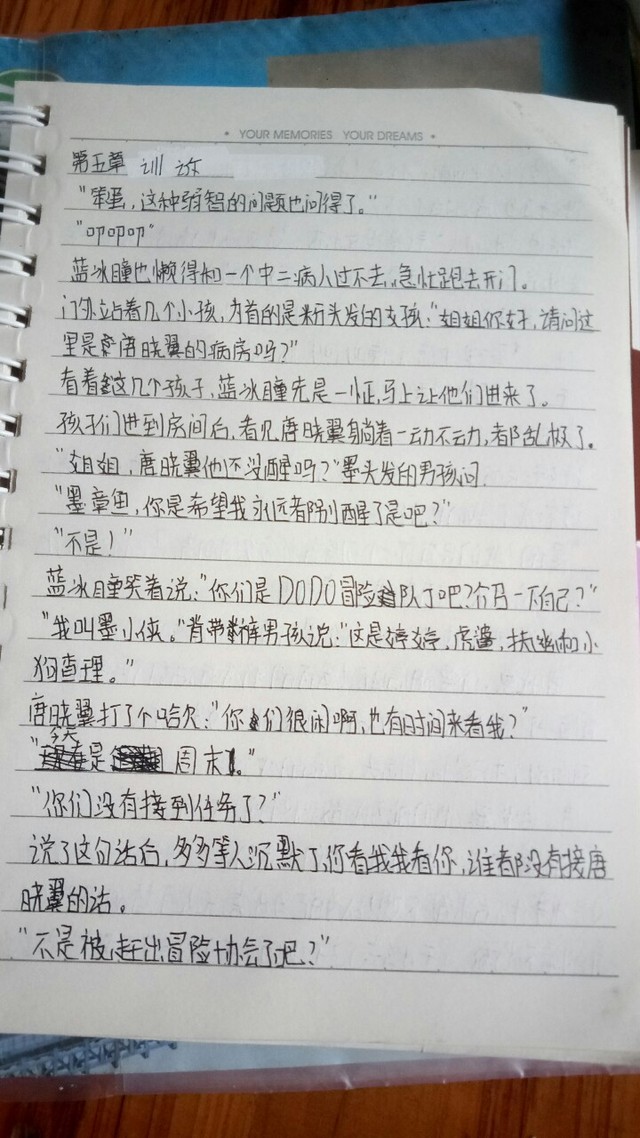 • YOUR MEMORIES YOUR DREAMS •
第五章 训
"笨蛋,这种弱智的问题也问得了。"
"叩叩叩"
蓝冰瞳也懒得和一个中二病人过不去,急忙跑去开门。
门外站着几个小孩,为首的是粉头发的女孩:"姐姐你好,请问这
里是唐晓翼的病房吗?"
看着这几个孩子,蓝冰瞳先是一怔,马上让他们进来了。
孩子们进到房间后,看见唐晓翼躺着一动不动,都乱极了。
"姐姐,唐晓翼他还没醒吗?"墨头发的男孩问.
"墨章鱼,你是希望我永远都别醒了是吧?"
"不是!"
蓝冰瞳笑着说:"你们是DODO冒险队了吧?介绍一下自己?"
"我叫墨小侠。"背带裤男孩说:"这是婷婷,虎鲨,扶幽和小
狗查理。"
唐晓翼打了个哈欠:"你们很闲啊,也有时间来看我?"
"今天是周末。"
"你们没有接到任务了?"
说了这句话后,多多等人沉默了,你看我我看你,谁都没有接唐
晓翼的话。
"不是被赶出冒险协会了吧?"